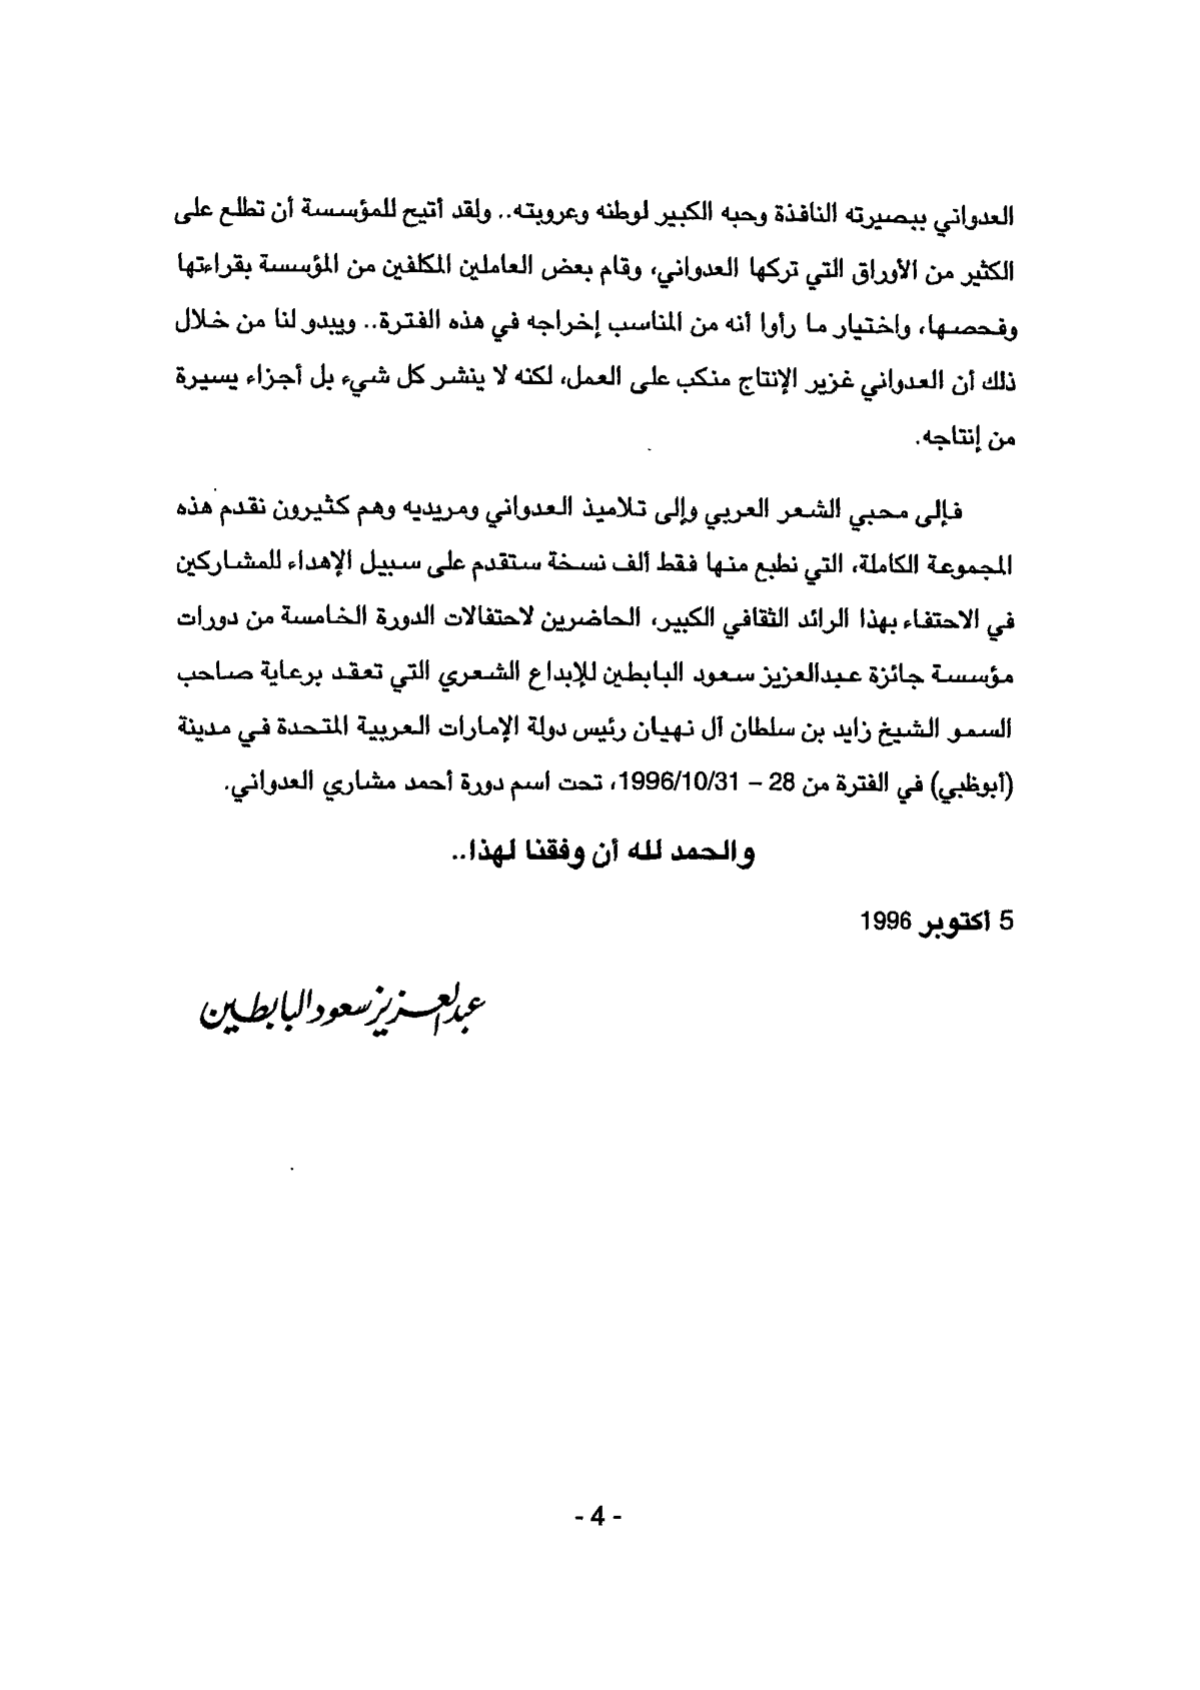 العدواني ببصيرته النافذة وحبه الكبير لوطنه وعروبته.. ولقد أتيح للمؤسسة أن تطلع على
الكثير من الأوراق التي تركها العدواني، وقام بعض العاملين المكلفين من المؤسسة بقراءتها
وفحصها، واختيار ما رأوا أنه من المناسب إخراجه في هذه الفترة.. ويبدو لنا من خلال
ذلك أن العدواني غزير الإنتاج منكب على العمل، لكنه لا ينشر كل شيء بل أجزاء يسيرة
من إنتاجه.
فإلى محبي الشعر العربي وإلى تلاميذ العدواني ومريديه وهم كثيرون نقدم هذه
المجموعة الكاملة، التي نطبع منها فقط ألف نسخة ستقدم على سبيل الإهداء للمشاركين
في الاحتفاء بهذا الرائد الثقافي الكبير، الحاضرين لاحتفالات الدورة الخامسة من دورات
مؤسسة جائزة عبدالعزيز سعود البابطين للإبداع الشعري التي تعقد برعاية صاحب
السمو الشيخ زايد بن سلطان آل نهيان رئيس دولة الإمارات العربية المتحدة في مدينة
(أبوظبي) في الفترة من 28 – 1996/10/31، تحت اسم دورة أحمد مشاري العدواني.
والحمد لله أن وفقنا لهذا..
5 أكتوبر 1996
عبدالعزيز سعود البابطين
- 4 -